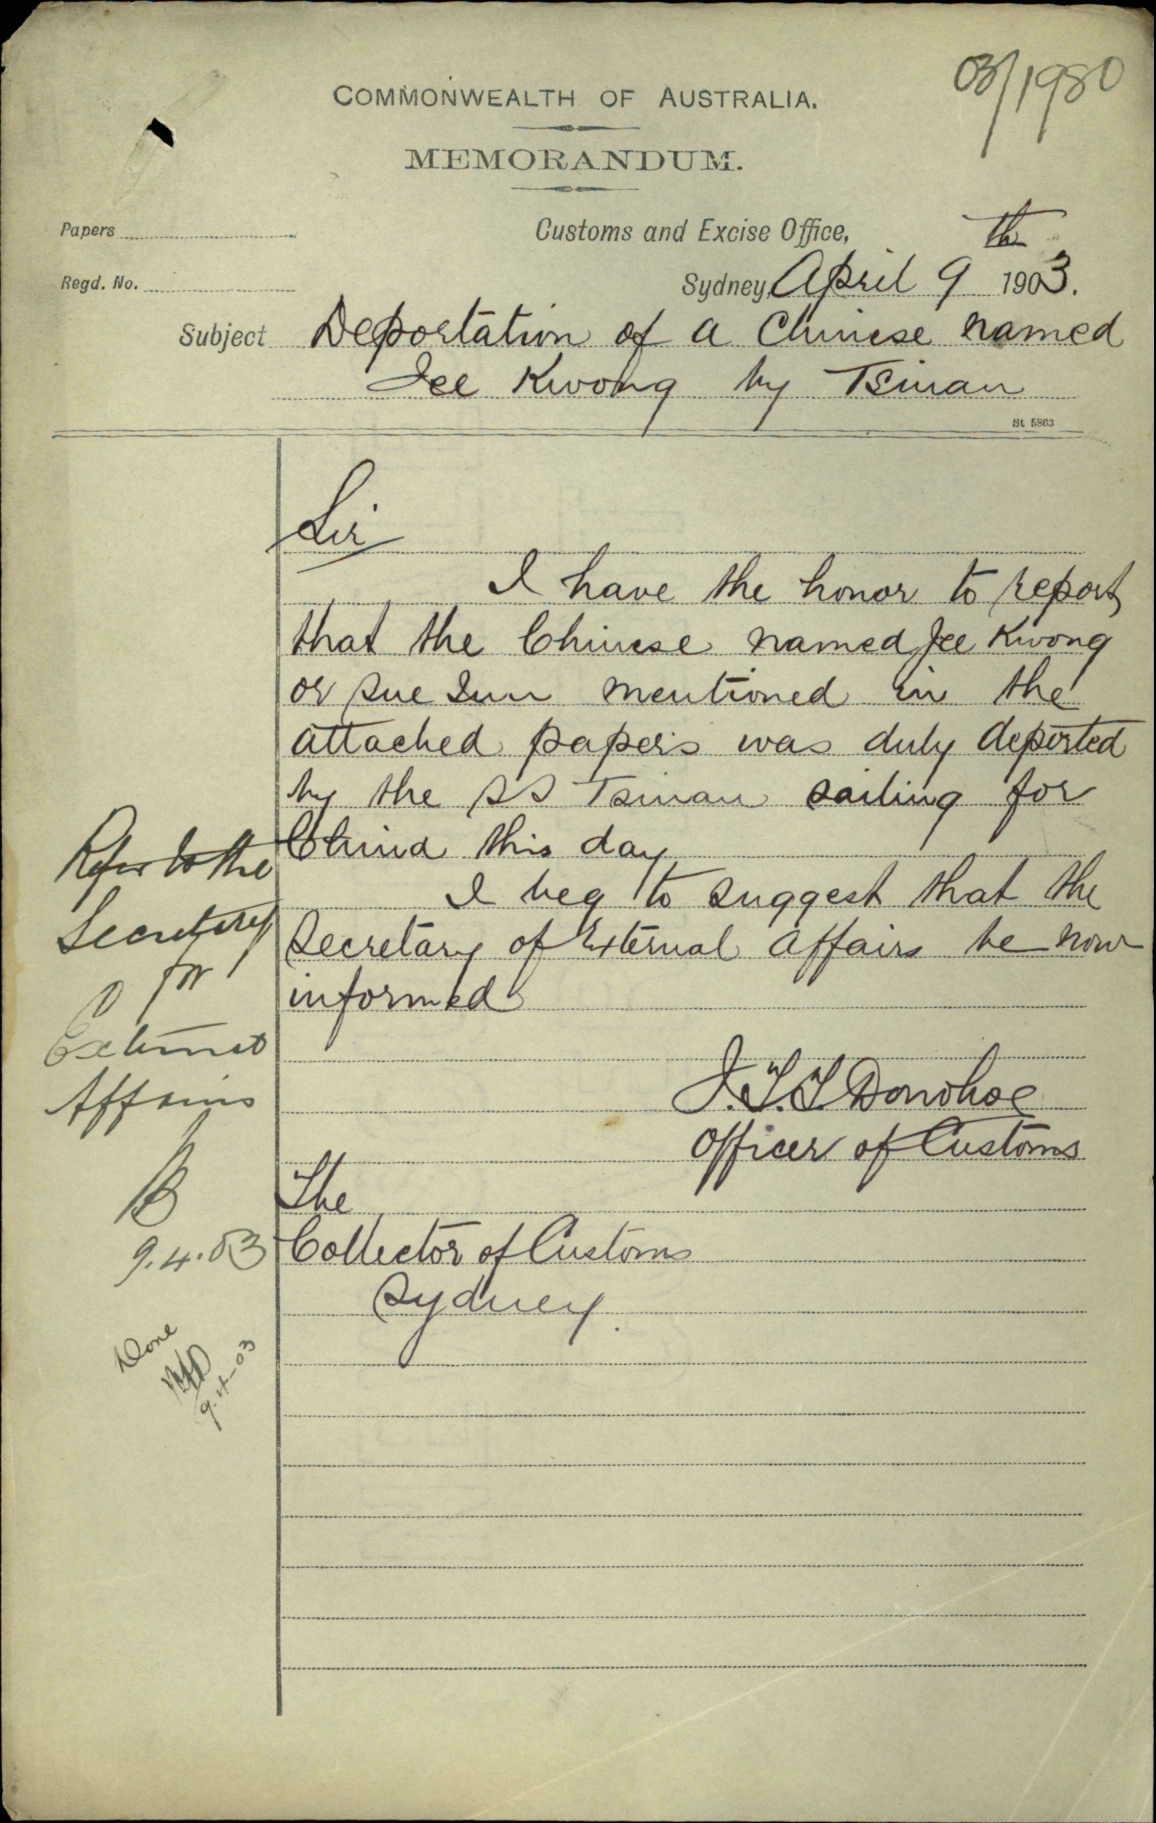 03/1980
COMMONWEALTH OF AUSTRALIA.
MEMORANDUM.
Papers
Customs and Excise Office,
Regd. No.
Sydney, April 9th 1903.
Subject Deportation of a Chinese named
Jee Kwong by Tsinan
St. 5863
Sir
I have the honor to report
that the Chinese named Jee Kwong
or Sue Sun mentioned in the
attached papers was duly deported
by the SS Tsinan sailing for
China this day
I beg to suggest that the
Secretary of External Affairs be now
informed
J.T.T. Donohoe
Officer of Customs
The
Collector of Customs
Sydney.
Refer to the
Secretary
for
External
Affairs
9.4.03
Done
9-4-03